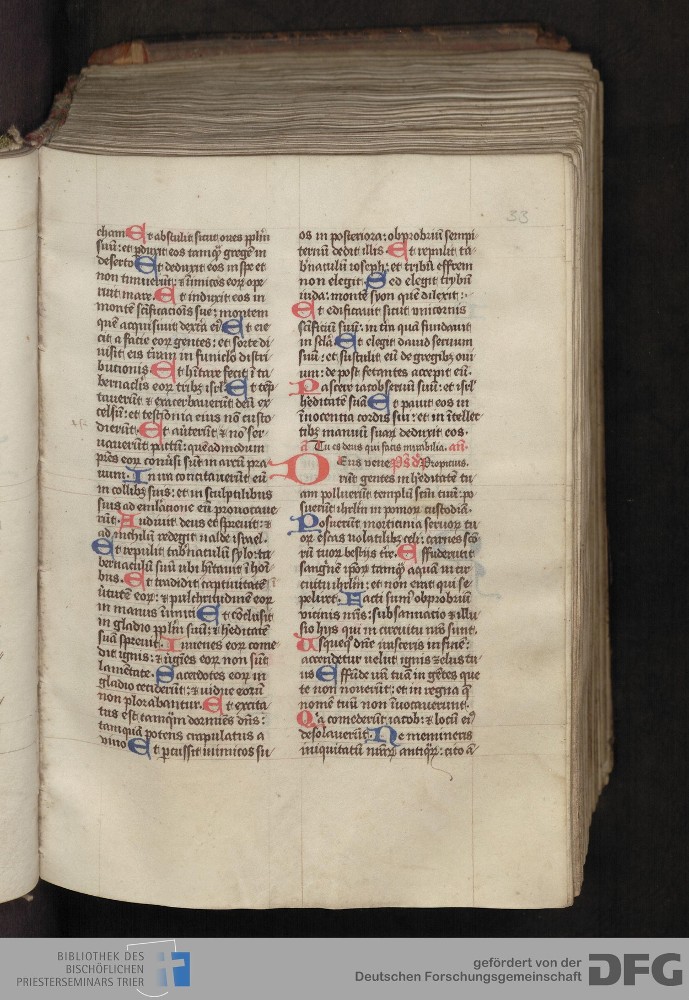 33
cham Et abstulit sicut oues ppl̄m
suū: et pduxit eos tamq̄ gregē in
deserto Et deduxit eos in spe et
non timuerūt: ⁊ īimicos eoꝝ ope
ruit mare. Et induxit eos in
montē sc̄ificatiōis sue: montem
quē acquisiuit dextᵃ eiꝰ Et eie
cit a facie eoꝝ gentes: et sorte di
uisit eis terram in funiclo distri
butionis. Et hītare fecit ī ta
bernaclis eoꝝ tribꝫ isrl̄. Et tēp
tauerūt ⁊ exacerbauerūt deū ex
celsū: et testiōnia eius nō custo
dierūt. Et aūterūt ⁊ nō ser
uauerūt pactū: quēadmodum
pr̄es eoꝝ conūsi sūt in arcū pra
uum. In ira concitauerūt eū
in collibꝫ suis: et in sculptilibus
suis ad emlatione eū prouocaue
rūt. Audiuit deus et spreuit: ⁊
ad nichilū redegit ualde israel.
Et repulit tab̄naculū sylo: ta
bernaculū suū ubi hītauit ī hoī
bus. Et tradidit captiuitatē
ūtutem eoꝝ: ⁊ pulchritudinē eoꝝ
in manus īimici Et cōclusit
in gladio ppl̄m suū: ⁊ heditatē
suā spreuit. Iuuenes eoꝝ come
dit ignis: ⁊ ūgīes eoꝝ non sūt
lamētate. Sacerdotes eoꝝ in
gladio ceciderūt: ⁊ uidue eorū
non plorabantur. Et excita
tus est tamq̄m dormiēs dn̄s:
tamquā potens crapulatus a
vino Et p̱cussit inimicos su
os in posteriora: obprobriū sempi
ternū dedit illis. Et repulit ta
b̄naculū ioseph: et tribū effrem
non elegit Sed elegit trybū
iuda: montē syon quē dilexit:
Et edificauit sicut unicornis
sc̄ificiū suū: in t̄ra quā fundauit
in sc̄la. Et elegit dauid seruum
suū: et sustulit eū de gregibꝫ oui
um: de post fetantes accepit eū.
Pascere iacob seruū suū: et isrl̄
h̄editatē suā Et pauit eos in
īnocentia cordis sui: et in ītellec
tibꝫ manuū suaꝝ deduxit eos.
a Tu es deus qui facis mirabilia. an̄.
Deus uene Ps̄ d̄ Propicius.
rūt gentes in h̄editatem tu
am polluerūt templū sc̄m tuū: po
suerūt ihrl̄m in pomoꝝ custodiā.
Posuerūt morticinia seruoꝝ tu
oꝝ escas uolatilibꝫ celi: carnes sc̄o
rū tuoꝝ bestijs t̄re. Effuderunt
sangnē ip̄oꝝ tamq̄ aquā in cir
cuitu ihrl̄m: et non erat qui se
peliret. Facti sumꝰ obprobriū
vicinis nr̄is: subsannatio ⁊ illu
sio hijs qui in circuitu nr̄o sunt.
Usquequo dn̄e irasceris in finē:
accendetur uelut ignis ⁊elus tu
us Effūde irā tuā in gētes que
te non nouerūt: et in regna q̄
nomē tuū non īuocauerunt.
Qia comederūt iacob: ⁊ locū eiꝰ
desolauerūt. Ne memineris
iniquitatū nr̄aꝝ antiqꝝ: cito ā
BIBLIOTHEK DES
BISCHÖFLICHEN
PRIESTERSEMINARS TRIER
gefördert von der
Deutschen Forschungsgemeinschaft
DFG